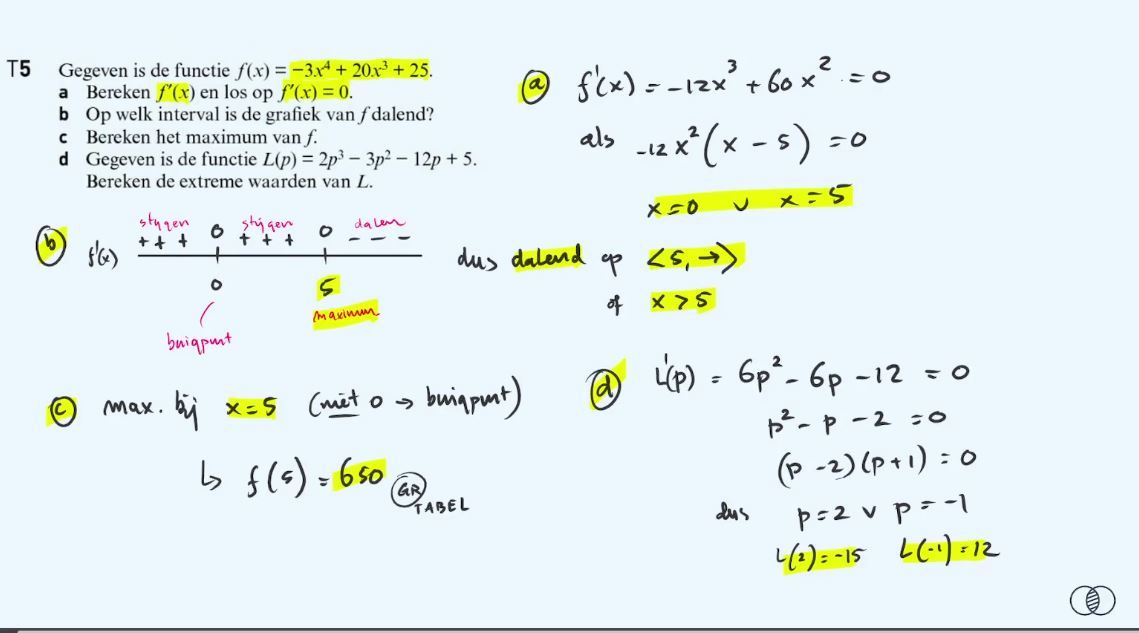 T5 Gegeven is de functie f(x) = −3x⁴ + 20x³ + 25.
a Bereken f′(x) en los op f′(x) = 0.
b Op welk interval is de grafiek van f dalend?
c Bereken het maximum van f.
d Gegeven is de functie L(p) = 2p³ − 3p² − 12p + 5.
Bereken de extreme waarden van L.
a f'(x) = -12x³ + 60x² = 0
als -12x²(x - 5) = 0
x=0 v x=5
b stijgen stijgen dalen
f'(x) + + + 0 + + + 0 - - -
0 5
buigpunt maximum
dus dalend op <5, →>
of x > 5
c max. bij x=5 (niet 0 → buigpunt)
↳ f(5) = 650 GR TABEL
d L'(p) = 6p² - 6p - 12 = 0
p² - p - 2 = 0
(p - 2)(p + 1) = 0
dus p=2 v p=-1
L(2)=-15 L(-1)=12